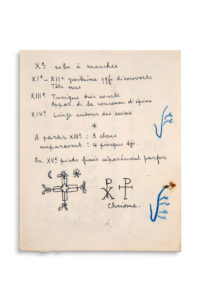 Xe aube à manches
XIe - XIIe poitrine découverte
Tête nue
XIIIe Tunique très courte
Appar. de la couronne d'épine
XIVe Linge autour des reins
A partir XIIIe : 3 clous
auparavant : 4 parfois
Au XVe pieds fixés séparément parfois
Chrisme